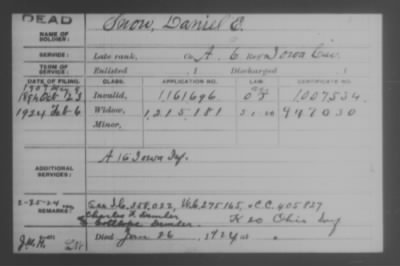 DEAD
NAME OF SOLDIER: Snow, Daniel C.
SERVICE: Late rank, Co. A, 6 Reg't Iowa Cav.
TERM OF SERVICE: Enlisted , 1 Discharged , 1
DATE OF FILING. CLASS. APPLICATION NO. LAW. CERTIFICATE NO.
Invalid, 1,161,696 1,007,534
1924 Feb 6 Widow, 1,215,181 947030
Minor,
ADDITIONAL SERVICES: A 16 Iowa Inf.
2-25-24
REMARKS: 258,022, 275,165, C.C. 405827
Charles F. K 20 Ohio Inf
Died Jan 26, 1924 at